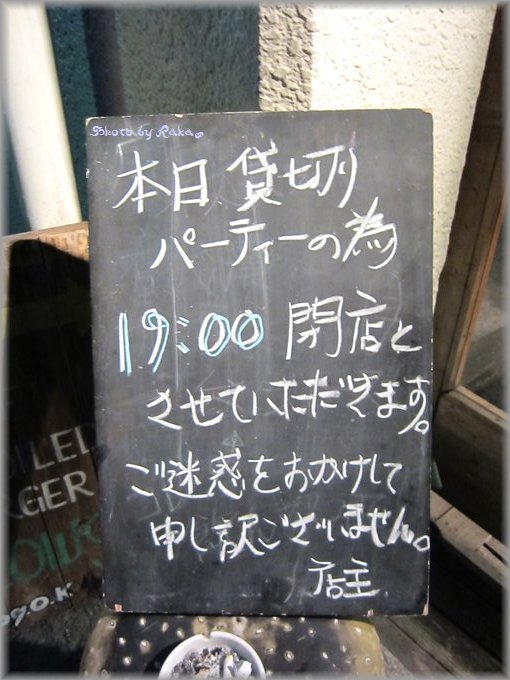 本日 貸切り
パーティーの為
19:00 閉店と
させていただきます。
ご迷惑をおかけして
申し訳ございません。
店主
LED
RGER
090.K